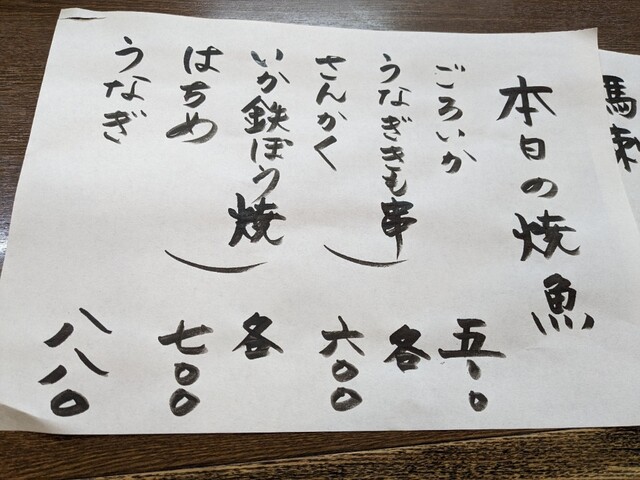 馬刺
本日の焼魚
ごろいか 五一〇
うなぎきも串
さんかく
各六〇〇
いか鉄ぽう焼
はちめ
各七〇〇
うなぎ 八八〇